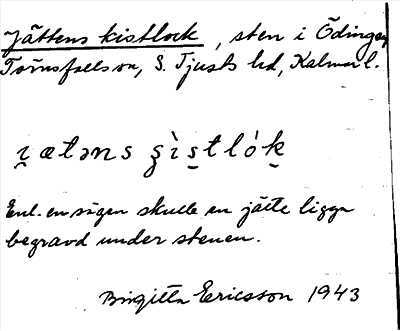 Jättens kistlock, sten i Ödingen,
Törnsfalls sn, S. Tjusts hd, Kalmar l.
ı̯ætəns ʂìs̱tlók̠
Enl. en sägen skulle en jätte ligga
begravd under stenen.
Birgitta Ericsson 1943